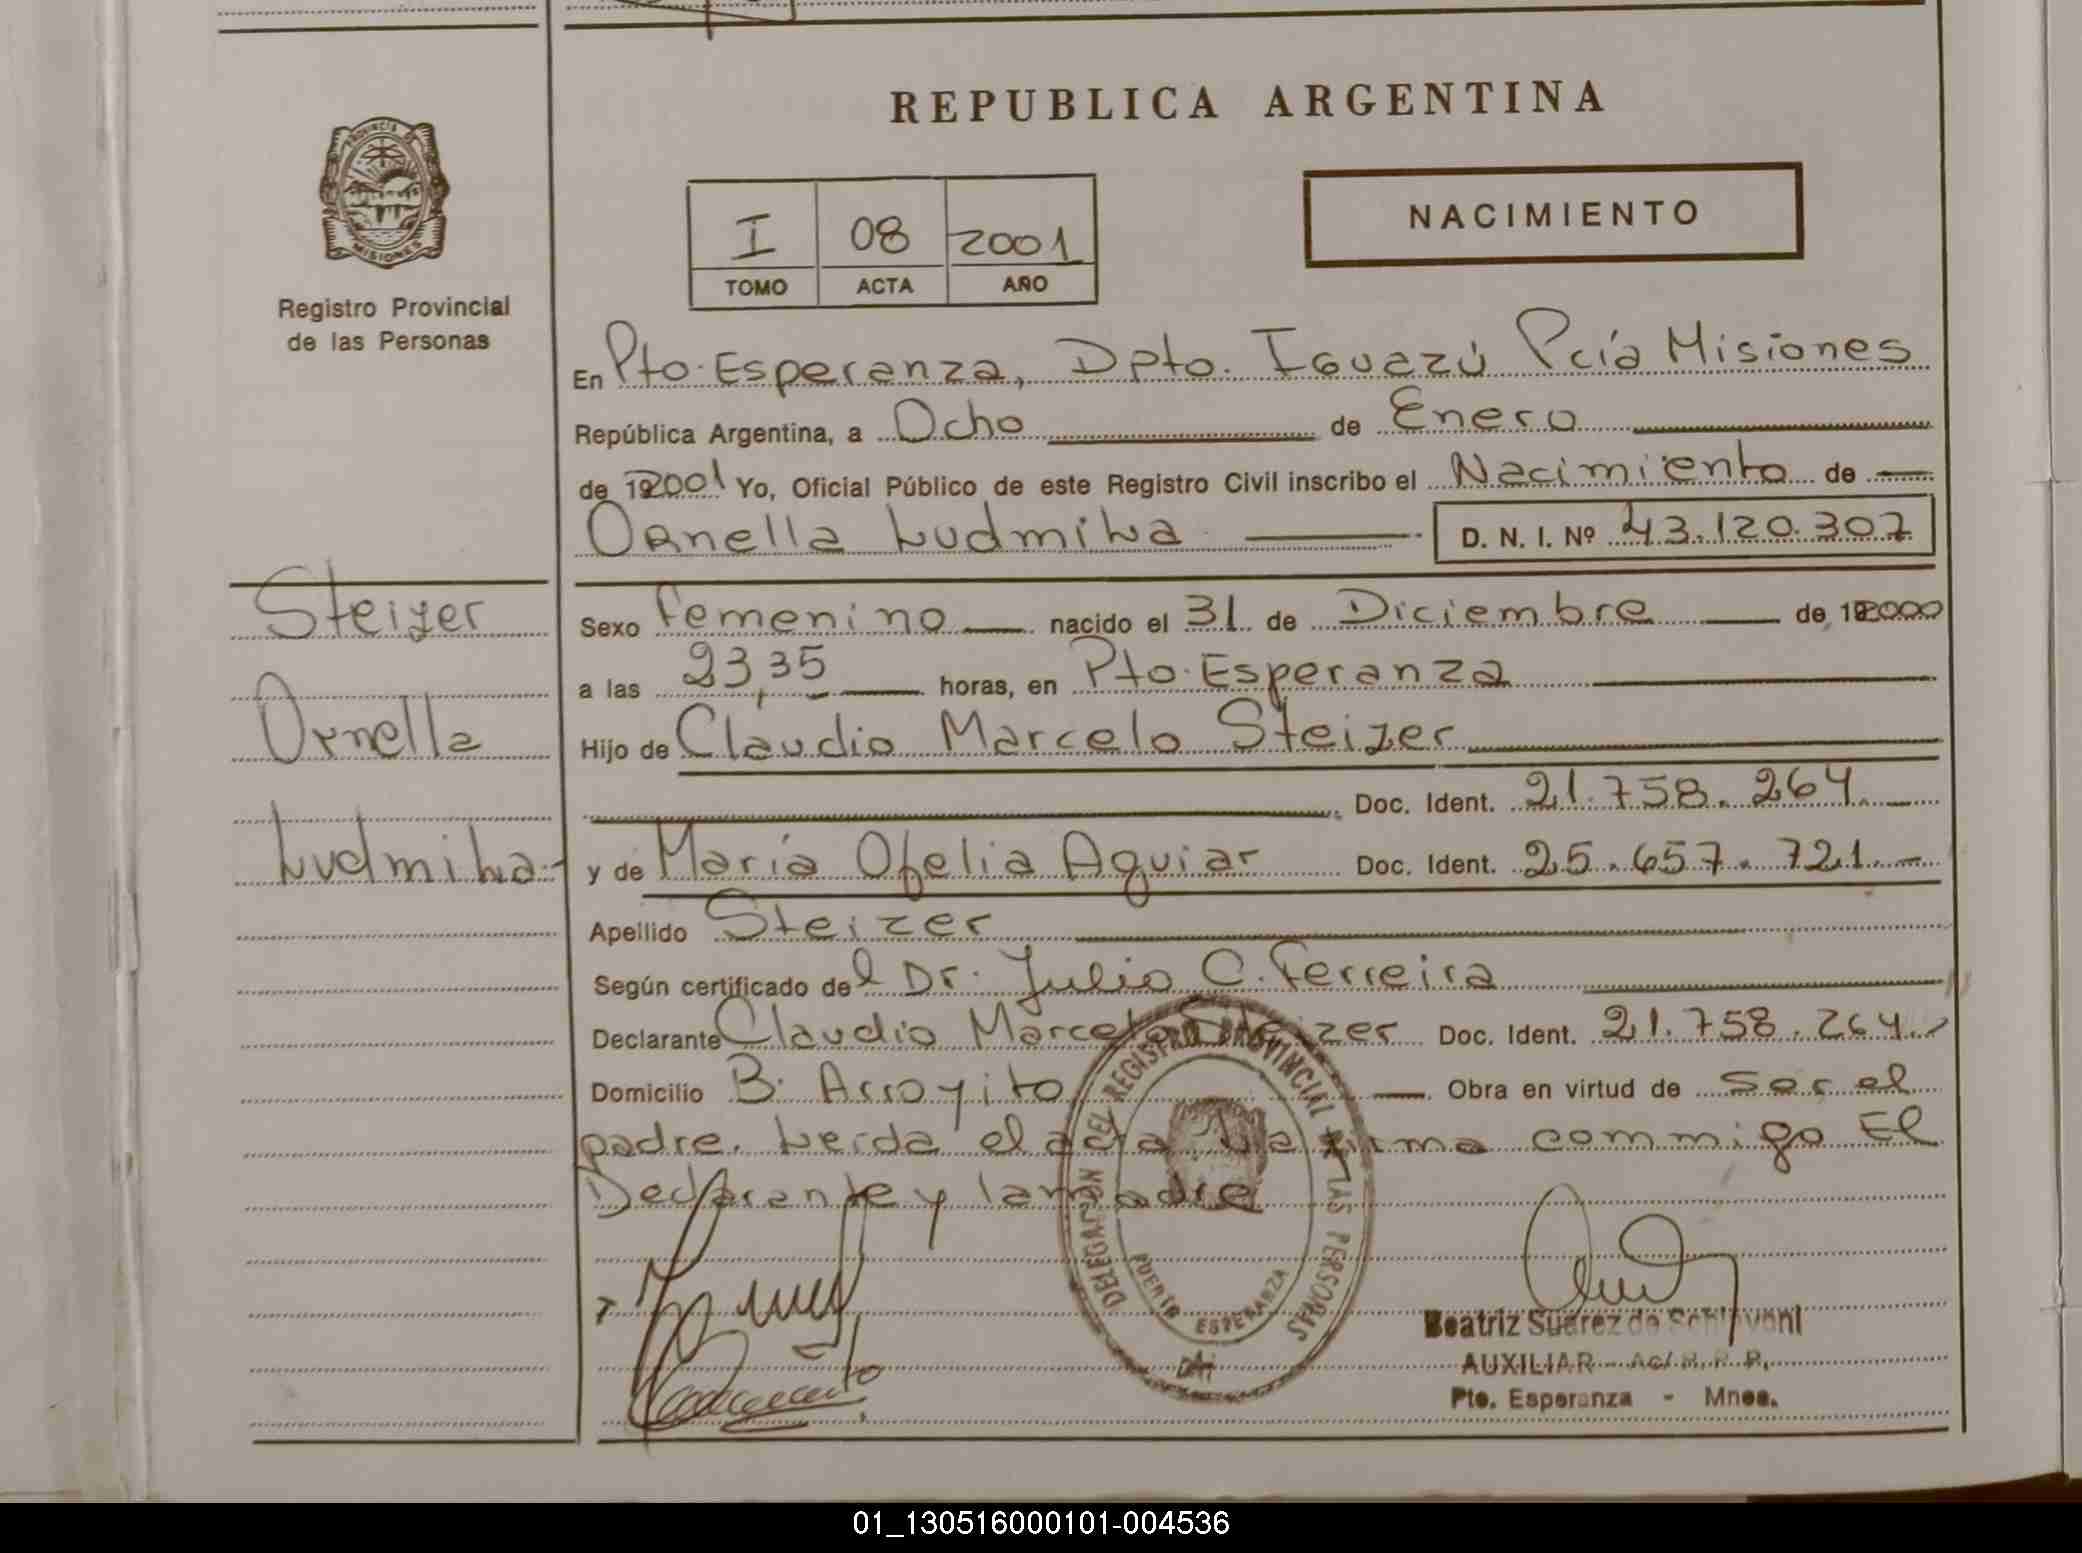 REPUBLICA ARGENTINA
PROVINCIA DE MISIONES
Registro Provincial
de las Personas
I 08 2001
TOMO ACTA AÑO
NACIMIENTO
En Pto. Esperanza, Dpto. Iguazú Pcía Misiones
República Argentina, a Ocho de Enero
de 192001 Yo, Oficial Público de este Registro Civil inscribo el Nacimiento de
Ornella Ludmila D. N. I. Nº 43.120.307
Steizer
Ornella
Ludmila
Sexo Femenino nacido el 31 de Diciembre de 192000
a las 23,35 horas, en Pto. Esperanza
Hijo de Claudio Marcelo Steizer
Doc. Ident. 21.758.264
y de María Ofelia Aguiar Doc. Ident. 25.657.721
Apellido Steizer
Según certificado del Dr. Julio C. Ferreira
Declarante Claudio Marcelo Steizer Doc. Ident. 21.758.264
Domicilio B. Arroyito Obra en virtud de ser el
padre. Leida el acta la firma commigo El
Declarante y la madre
DELEGACION DEL REGISTRO PROVINCIAL DE LAS PERSONAS
PUERTO ESPERANZA
Beatriz Suárez de
AUXILIAR - Ac/ R. P. P.
Pto. Esperanza - Mnes.
01_130516000101-004536